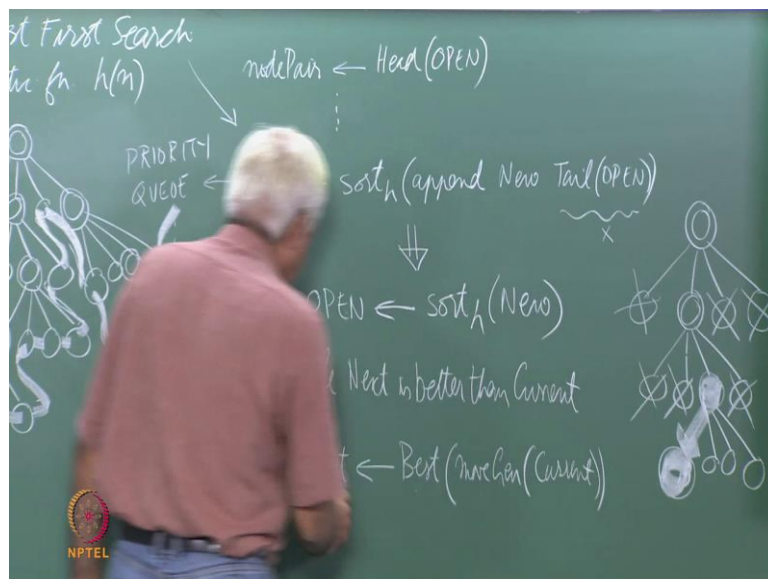 st First Search
tic fn. h(n)
nodePair ← Head(OPEN)
PRIORITY
QUEUE ←
sort_h(append New Tail(OPEN))
x
⇓
OPEN ← sort_h(New)
Next is better than Current
t ← Best(moveGen(Current))
NPTEL